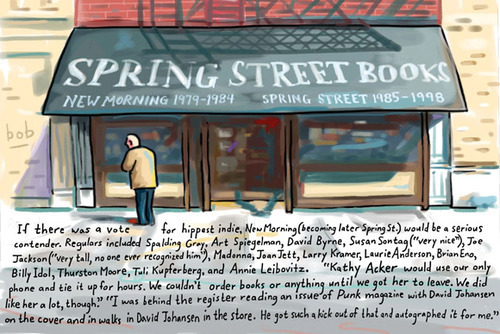 SPRING STREET BOOKS
NEW MORNING 1979-1984 SPRING STREET 1985-1998
bob
If there was a vote for hippest indie, New Morning (becoming later Spring St.) would be a serious
contender. Regulars included Spalding Gray, Art Spiegelman, David Byrne, Susan Sontag ("very nice"), Joe
Jackson ("very tall, no one ever recognized him"), Madonna, Joan Jett, Larry Kramer, Laurie Anderson, Brian Eno,
Billy Idol, Thurston Moore, Tuli Kupferberg, and Annie Leibovitz. "Kathy Acker would use our only
phone and tie it up for hours. We couldn't order books or anything until we got her to leave. We did
like her a lot, though." "I was behind the register reading an issue of Punk magazine with David Johansen
on the cover and in walks in David Johansen in the store. He got such a kick out of that and autographed it for me."